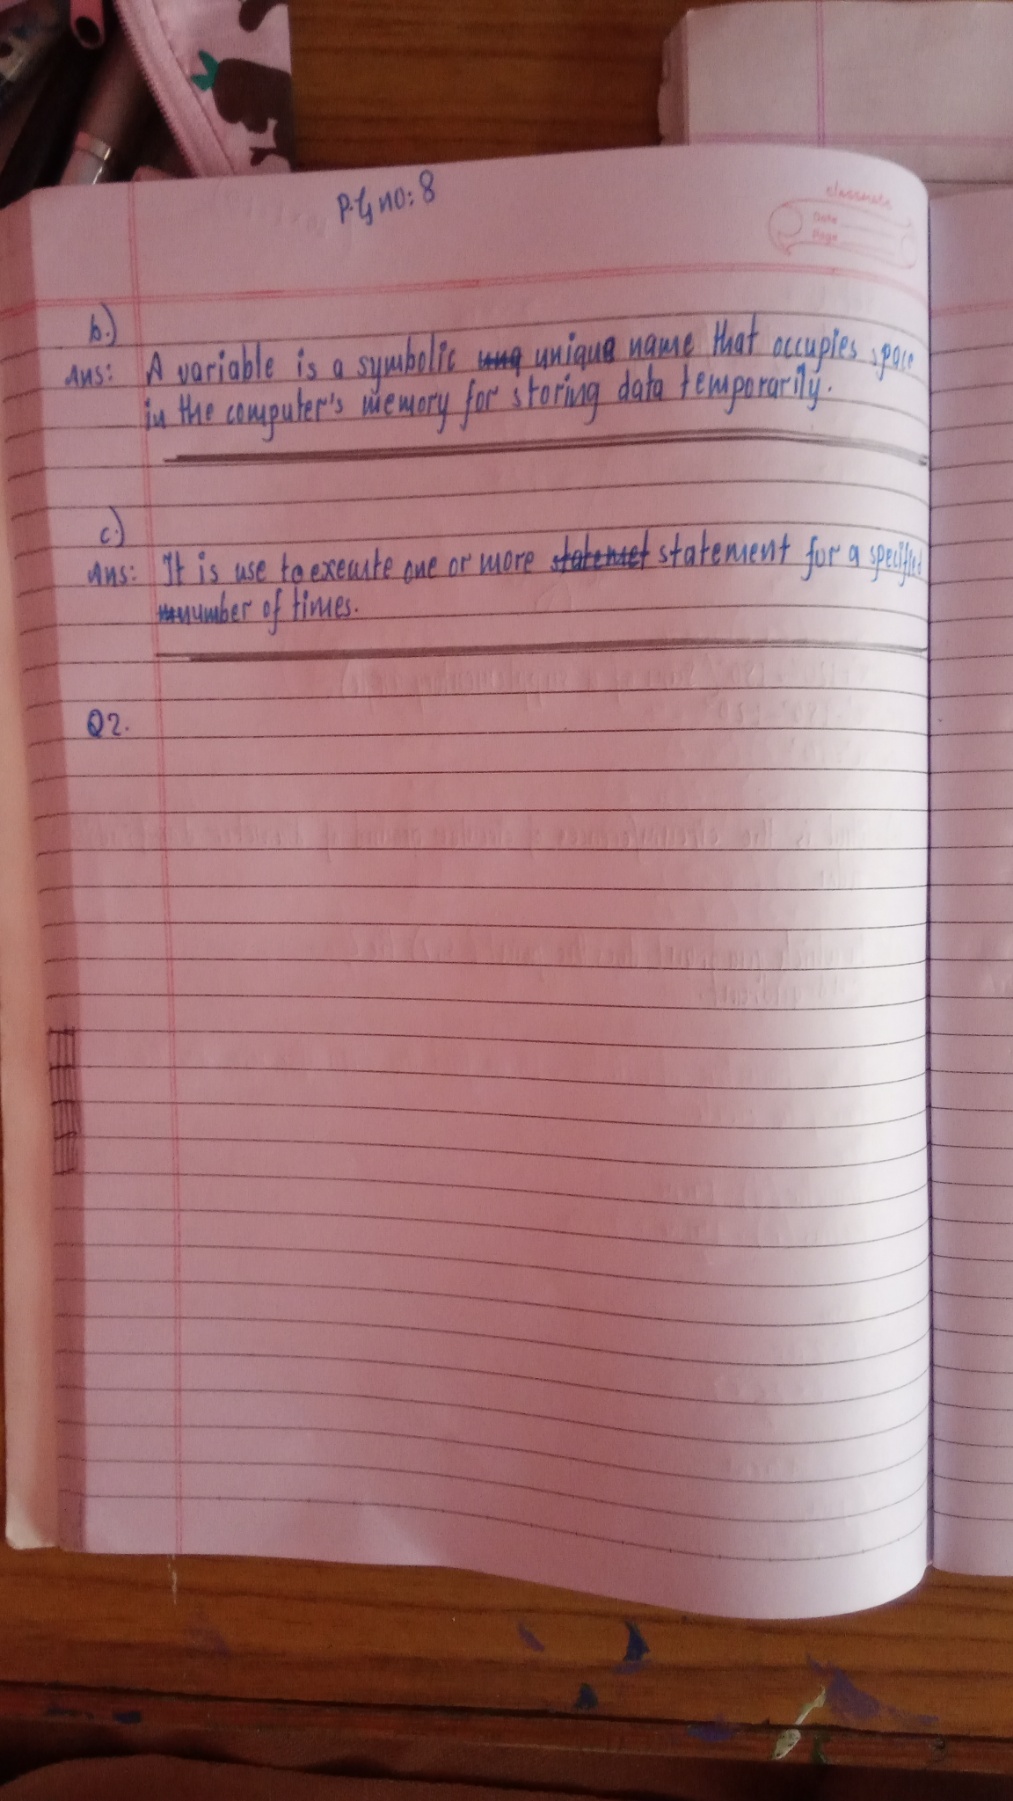 P.G no: 8
classmate
Date
Page
b.)
Ans: A variable is a symbolic unique name that occupies space
in the computer's memory for storing data temporarily.
c.)
Ans: It is use to execute one or more statement for a specified
number of times.
Q2.